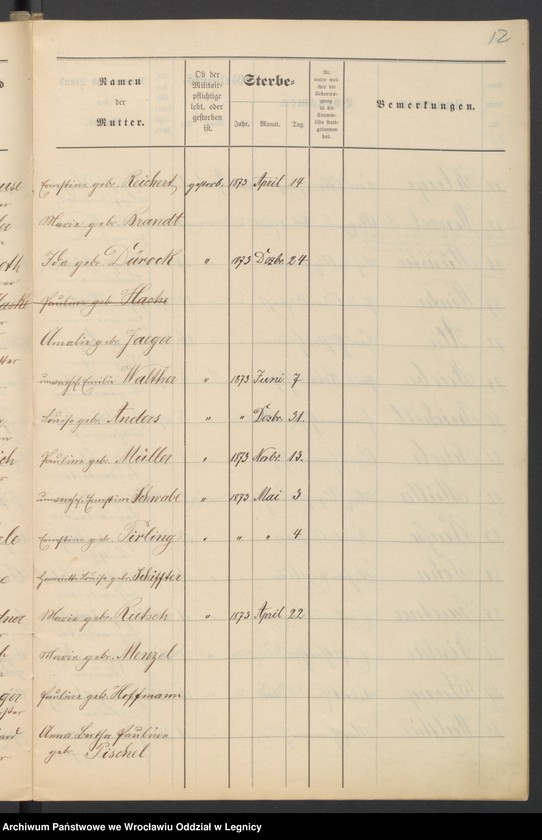 12
Namen
der
Mutter.
Ob der
Militair-
pflichtige
lebt, oder
gestorben
ist.
Sterbe-
Jahr. Monat. Tag.
No.
unter wel-
cher die
Uebertra-
gung
in die
Stamm-
rolle statt-
gefunden
hat.
Bemerkungen.
Ernstine geb. Reichert gestorb. 1873 April 14
Marie geb. Brandt
Ida geb. Dürock " 1873 Dezbr. 24
Pauline geb.
Amalie geb. Jaeger
unverehl. Emilie Walther " 1873 Juni 7
Louise geb. Anders " " Dezbr. 21.
Pauline geb. Müller " 1873 Novbr. 13.
unverehl. Ernstine Schwabe " 1873 Mai 3
Ernstine geb. Pirling " " " 4
Henriette Louise geb. Schiffter
Marie geb. Rutsch " 1873 April 22
Marie geb. Menzel
Pauline geb. Hoffmann
Anna Bertha Pauline
geb. Pischel
Archiwum Państwowe we Wrocławiu Oddział w Legnicy